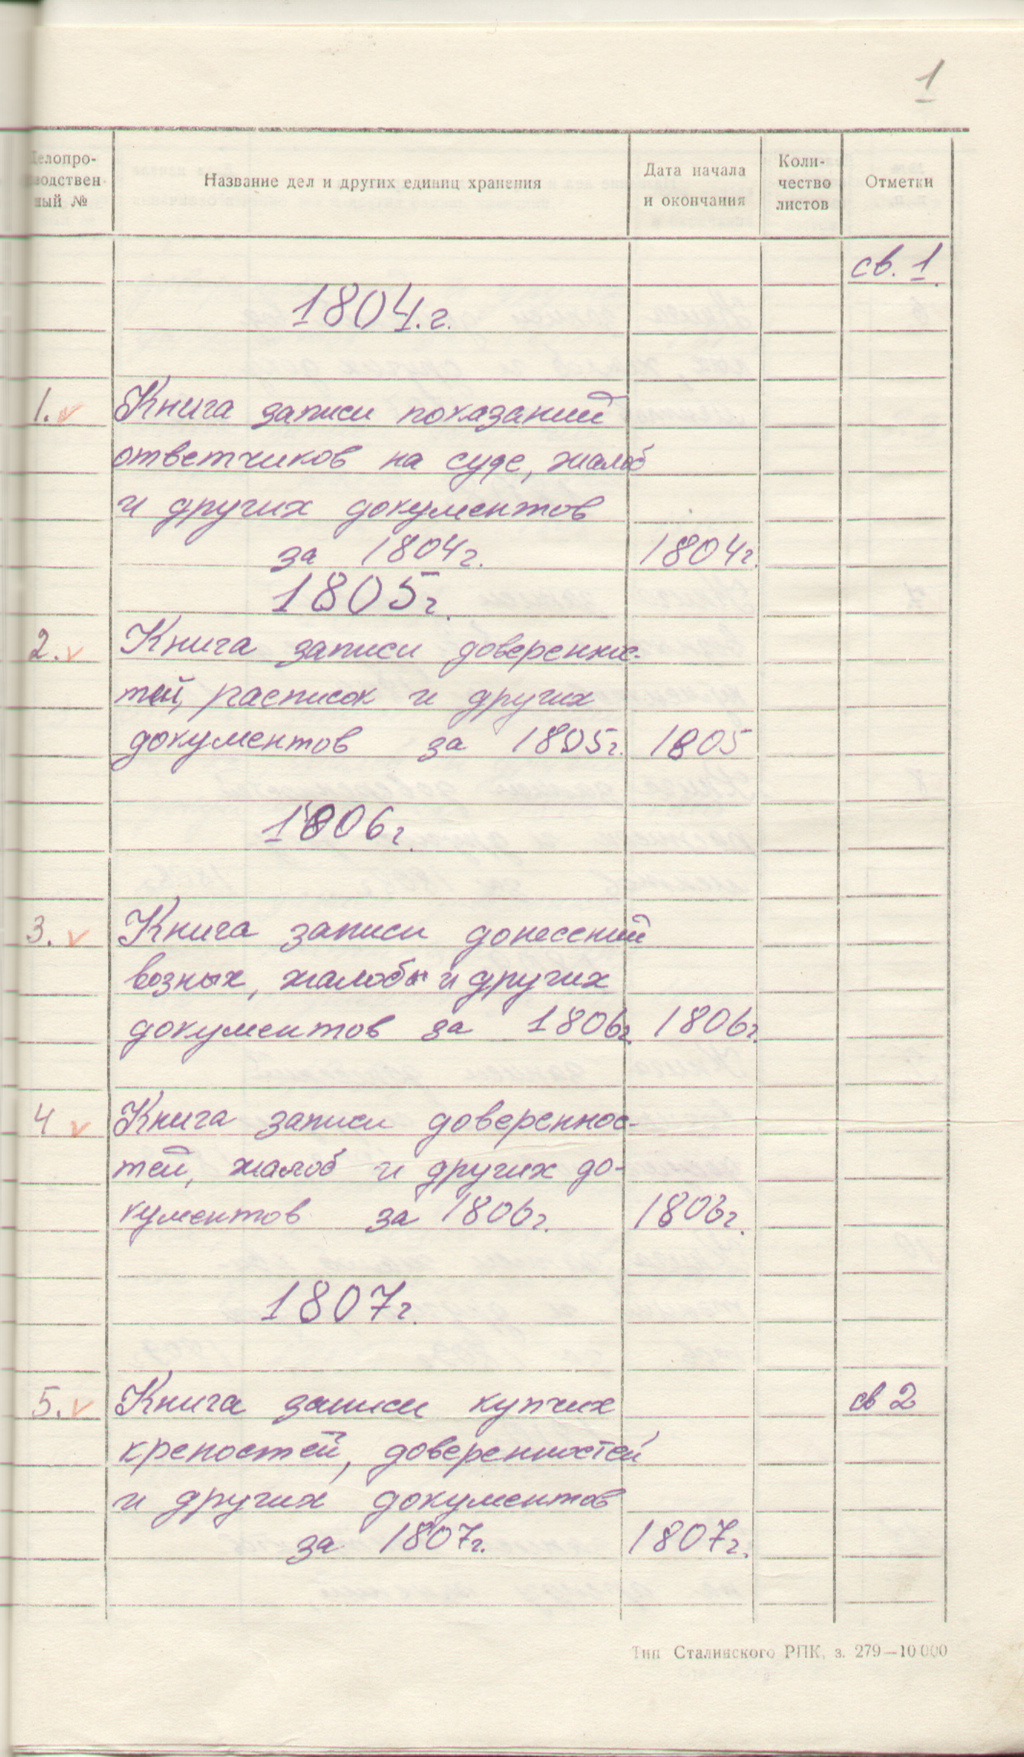 1
Делопро-
водствен
ный №
Название дел и других единиц хранения
Дата начала
и окончания
Коли-
чество
листов
Отметки
св. 1.
1804.г.
1. Книга записи показаний
ответчиков на суде, жалоб
и других документов
за 1804г. 1804г.
1805г.
2. Книга записи доверенно-
тей, расписок и других
документов за 1805г. 1805
1806г.
3. Книга записи донесений
возных, жалобы и других
документов за 1806г. 1806г.
4 Книга записи довереннос-
тей, жалоб и других до-
кументов за 1806г. 1806г.
1807г.
5. Книга записи купчих св 2
крепостей, доверенностей
и других документов
за 1807г. 1807г.
Тип Сталинского РПК, з. 279—10 000